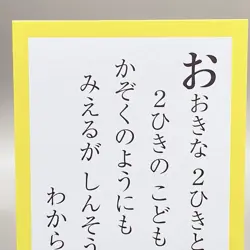 おおきな 2ひきと
2ひきの こども
かぞくのようにも
みえるが しんそう
わから